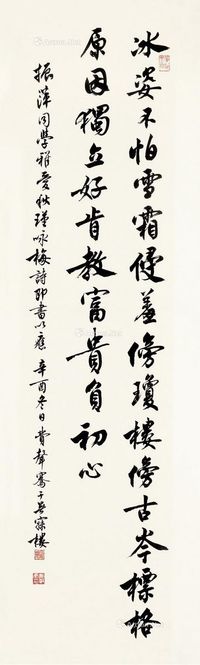 冰姿不怕雪霜侵羞傍瓊樓傍古岑標格
原因獨立好肯教富貴負初心
振萍同學雅愛秋瑾咏梅詩即書以應辛酉冬日費聲騫于無寐樓